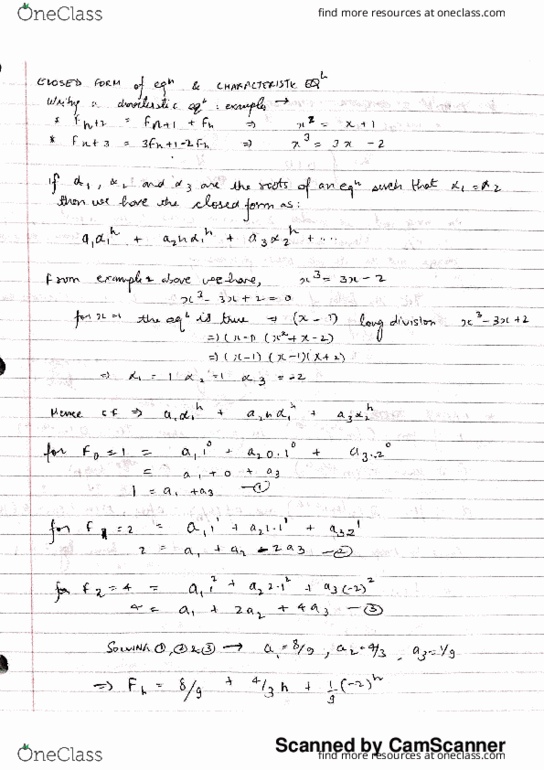 OneClass
find more resources at oneclass.com
CLOSED FORM of eqⁿ & CHARACTERISTIC EQⁿ
Writing a characteristic eqⁿ : examples →
* Fn+2 = Fn+1 + Fn ⇒ x² = x + 1
* Fn+3 = 3Fn+1 - 2Fn ⇒ x³ = 3x - 2
if α₁, α₂ and α₃ are the roots of an eqⁿ such that α₁ = α₂
then we have the closed form as:
a₁α₁ⁿ + a₂nα₁ⁿ + a₃α₂ⁿ + ...
From example 2 above we have, x³ = 3x - 2
x³ - 3x + 2 = 0
for x=1 the eqⁿ is true ⇒ (x - 1) long division x³ - 3x + 2
⇒ (x-1) (x² + x - 2)
⇒ (x-1) (x-1)(x+2)
⇒ α₁ = 1 α₂ = 1 α₃ = -2
Hence CF ⇒ a₁α₁ⁿ + a₂nα₁ⁿ + a₃α₂ⁿ
for F₀ = 1 = a₁1⁰ + a₂0.1⁰ + a₃.2⁰
= a₁ + 0 + a₃
1 = a₁ + a₃ —①
for F₁ = 2 = a₁1¹ + a₂1.1¹ + a₃2¹
2 = a₁ + a₂ - 2a₃ —②
for F₂ = 4 = a₁1² + a₂2.1² + a₃(-2)²
4 = a₁ + 2a₂ + 4a₃ —③
Solving ①, ② & ③ → a₁ = 8/9, a₂ = 4/3, a₃ = 1/9
⇒ Fn = 8/9 + 4/3 n + 1/9 (-2)ⁿ
Scanned by CamScanner
OneClass
find more resources at oneclass.com